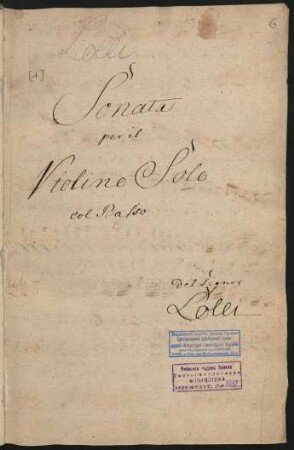 6
Lolli
[1]
Sonata
per il
Violino Solo
col Basso
Del Signor
Lolli